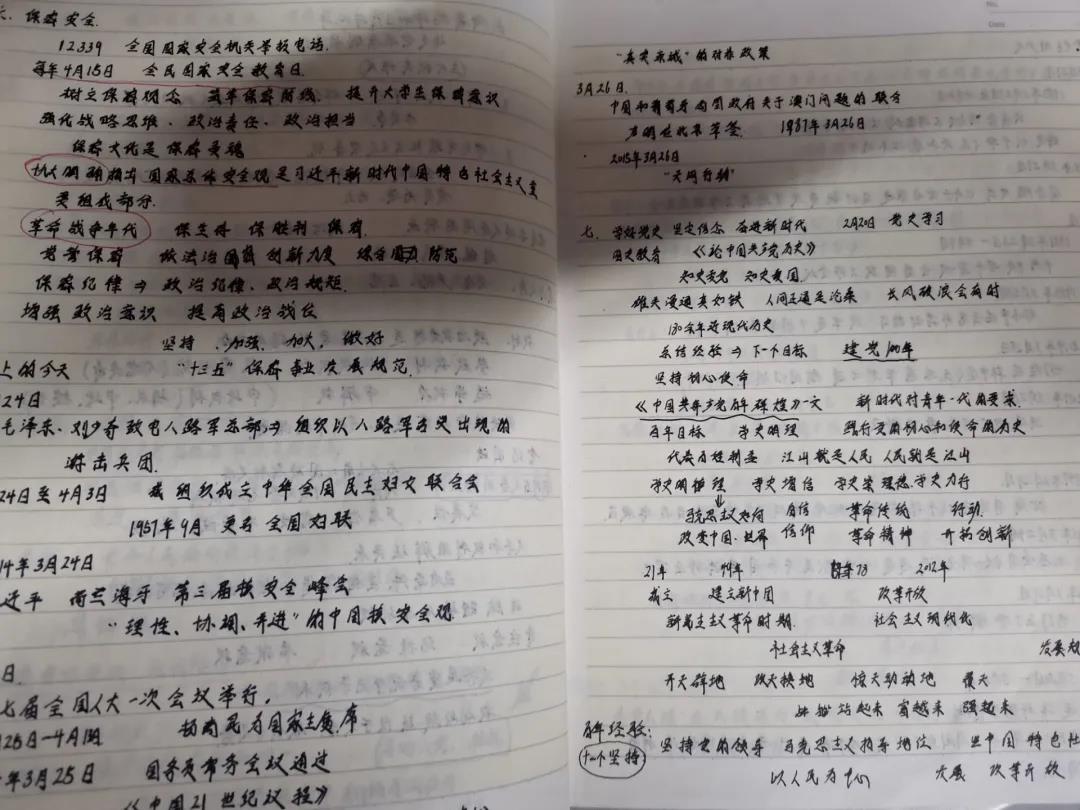 六、保密安全.
12339 全国国家安全机关举报电话.
每年4月15日 全民国家安全教育日.
树立保密观念 筑牢保密防线. 提升大学生保密意识
强化战略思维、政治责任、政治担当
保密文化是保密灵魂
明确指出 国家总体安全观是习近平新时代中国特色社会主义重
要组成部分.
革命战争年代 保生存 保胜利 保密.
党管保密 依法治国 创新力度 综合 防范
保密纪律 ⇒ 政治纪律、政治规矩.
增强政治意识 提高政治站位
坚持、加强、加大、做好
上的今天 "十三五"保密事业发展规范.
24日
毛泽东、刘少奇致电八路军总部 ⇒ 组织以八路军名义出现的
游击兵团.
24日至4月3日 组织成立中华全国民主妇女联合会
1957年9月 更名全国妇联
14年3月24日
近平 荷兰海牙 第三届核安全峰会
"理性、协调、并进"的中国核安全观
日.
七届全国人大一次会议举行.
25日-4月 杨尚昆为国家主席
年3月25日 国务院常务会议通过
《中国21世纪议程》
"真实亲诚"的对非政策
3月26日.
中国和葡萄牙两国政府关于澳门问题的联合
声明在北京草签. 1987年3月26日
2015年3月26日
"天网行动"
七、学好党史 坚定信念 奋进新时代 2月20日 党史学习
历史教育 《论中国共产党历史》
知史爱党 知史爱国.
雄关漫道真如铁 人间正道是沧桑 长风破浪会有时
180余年近现代历史
总结经验 ⇒ 下一个目标 建党100年
坚持初心使命
《中国共产党 辉煌》一文 新时代对青年一代的要求.
百年目标 学史明理 践行党的初心和使命的历史
江山就是人民 人民就是江山
学史明理 学史增信 学史崇德 学史力行
马克思主义 自信 革命传统 行动.
改变中国、世界 信仰 革命精神 开拓创新
21年 49年 78 2012年
成立 建立新中国 改革开放
新民主主义革命时期. 社会主义现代化
社会主义革命 发展
开天辟地 改天换地 惊天动地
站起来 富起来 强起来
经验:
十个坚持 坚持党的领导 马克思主义指导地位 中国特色社
以人民为中心 发展 改革开放